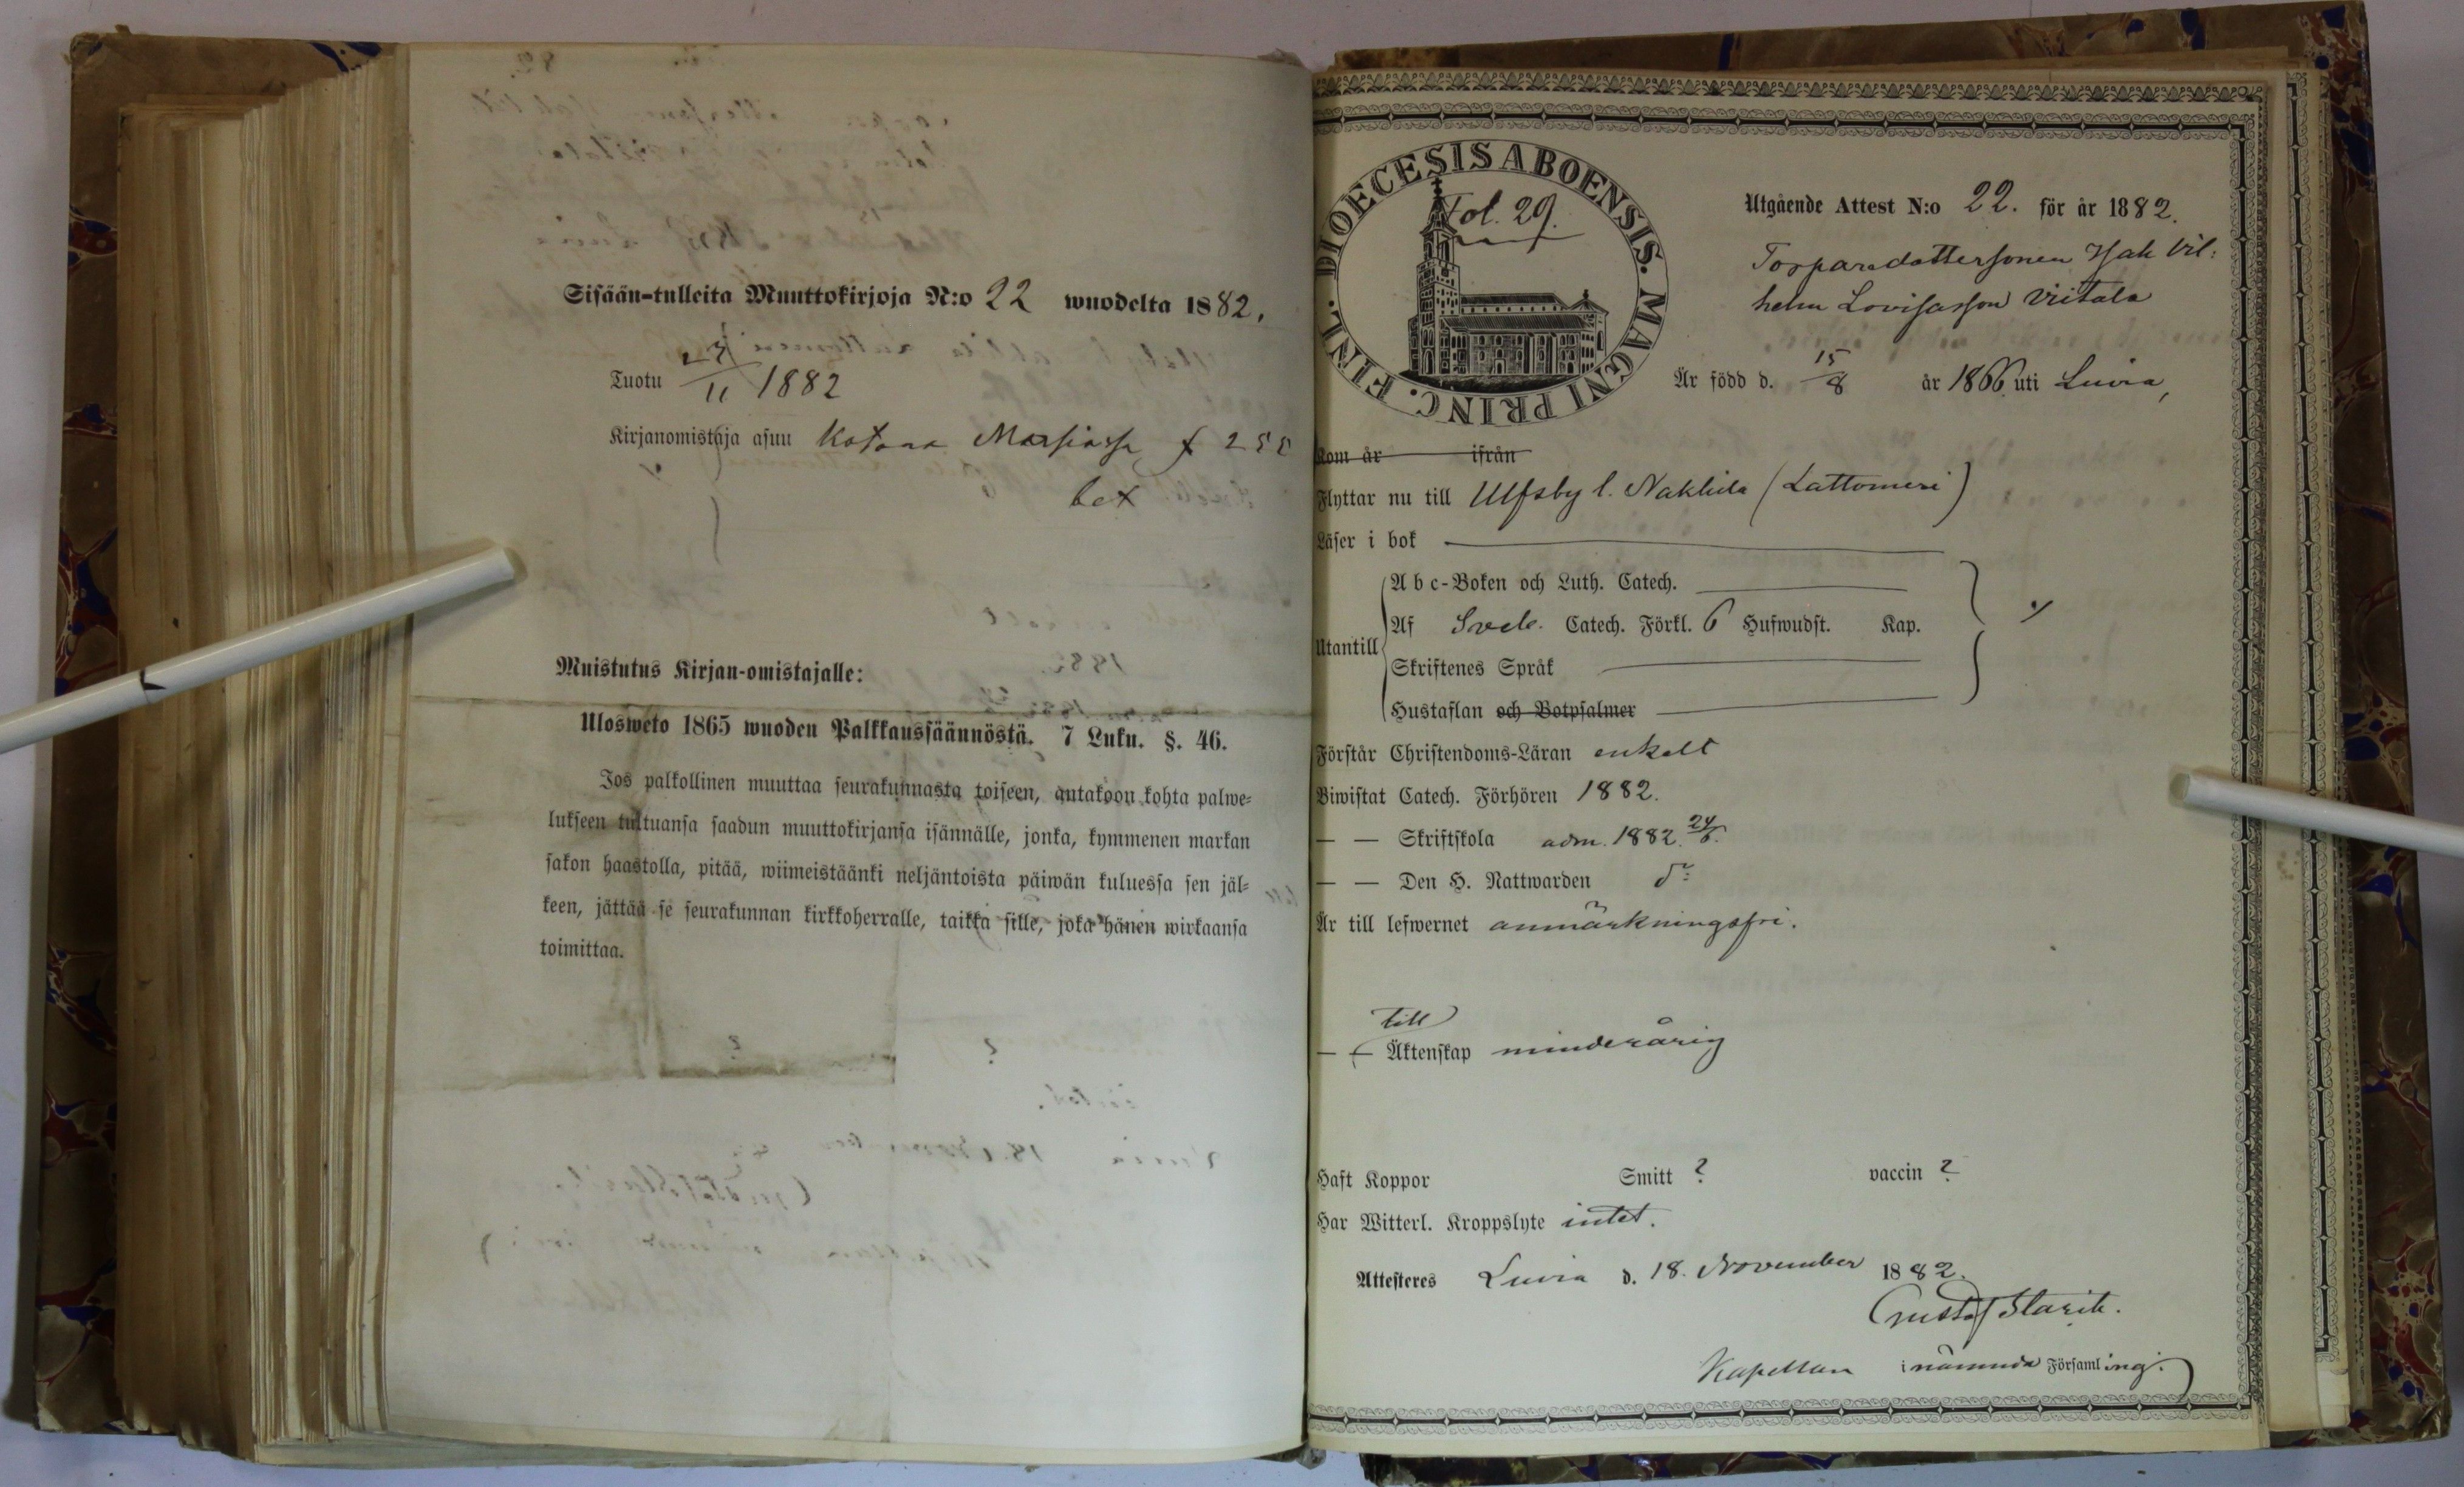 Sisään-tulleita Muuttokirjoja N:o 22 wuodelta 1882.
Tuotu 11 1882
Kirjanomistaja asuu
Muistutus Kirjan-omistajalle:
Ulosweto 1865 wuoden Palkkaussäännöstä. 7 Luku. §. 46.
Jos palkollinen muuttaa seurakunnasta toiseen, antakoon kohta palwe=
lukseen tultuansa saadun muuttokirjansa isännälle, jonka, kymmenen markan
sakon haastolla, pitää, wiimeistäänki neljäntoista päiwän kuluessa sen jäl=
keen, jättää se seurakunnan kirkkoherralle, taikka sille, joka hänen wirkaansa
toimittaa.
DIOECESIS ABOENSIS. MAGNI PRINC. FINL.
Fol. 29.
Utgående Attest N:o 22. för år 1882.
Torparedottersonen Isak Vil:
helm Lovisasson Viitala
Är född d. 15/8 år 1866 uti Luvia,
Kom år ifrån
Flyttar nu till Ulfsby l. Nakkila (Lattomeri)
Läser i bok
Utantill
Abc-Boken och Luth. Catech.
Af Sveb. Catech. Förkl. 6 Hufwudst. Kap.
Skriftenes Språk
Hustaflan och Botpsalmer
Förstår Christendoms-Läran enkelt
Biwistat Catech. Förhören 1882.
— — Skriftskola adm. 1882 24/6.
— — Den H. Nattwarden d:o
Är till lefwernet anmärkningsfri.
till
— — Äktenskap minderårig
Haft Koppor Smitt ? vaccin ?
Har Witterl. Kroppslyte intet.
Attesteres Luvia d. 18. November 1882.
Gustaf
Kapellan i nämnda Församling.